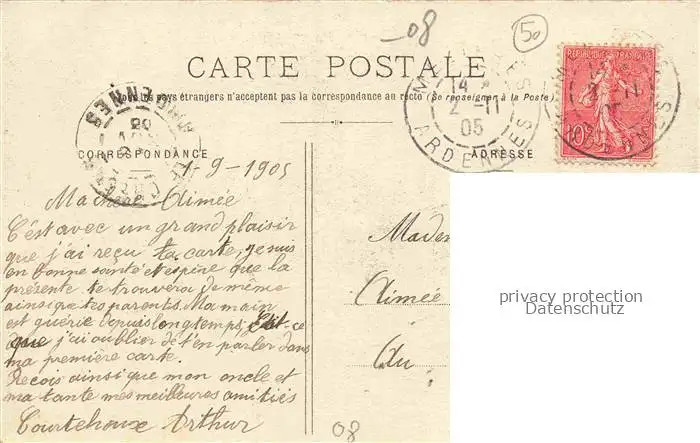 -08
50
CARTE POSTALE
Tous les pays étrangers n'acceptent pas la correspondance au recto (Se renseigner à la Poste)
REPUBLIQUE FRANÇAISE
10c
14
2-11
05
ARDENNES
ARDENNES
CORRESPONDANCE
ADRESSE
1-9-1905
Ma chère Aimée
C'est avec un grand plaisir
que j'ai reçu ta carte, je suis
en bonne santé et espère que la
présente te trouvera de même
ainsi que tes parents. Ma main
est guérie depuis longtemps, Est-ce
que j'ai oublier de t'en parler dans
ma première carte.
Reçois ainsi que mon oncle et
ma tante mes meilleures amitiés
Courtehoux Arthur
Madem
Aimée
Au
privacy protection
Datenschutz
08